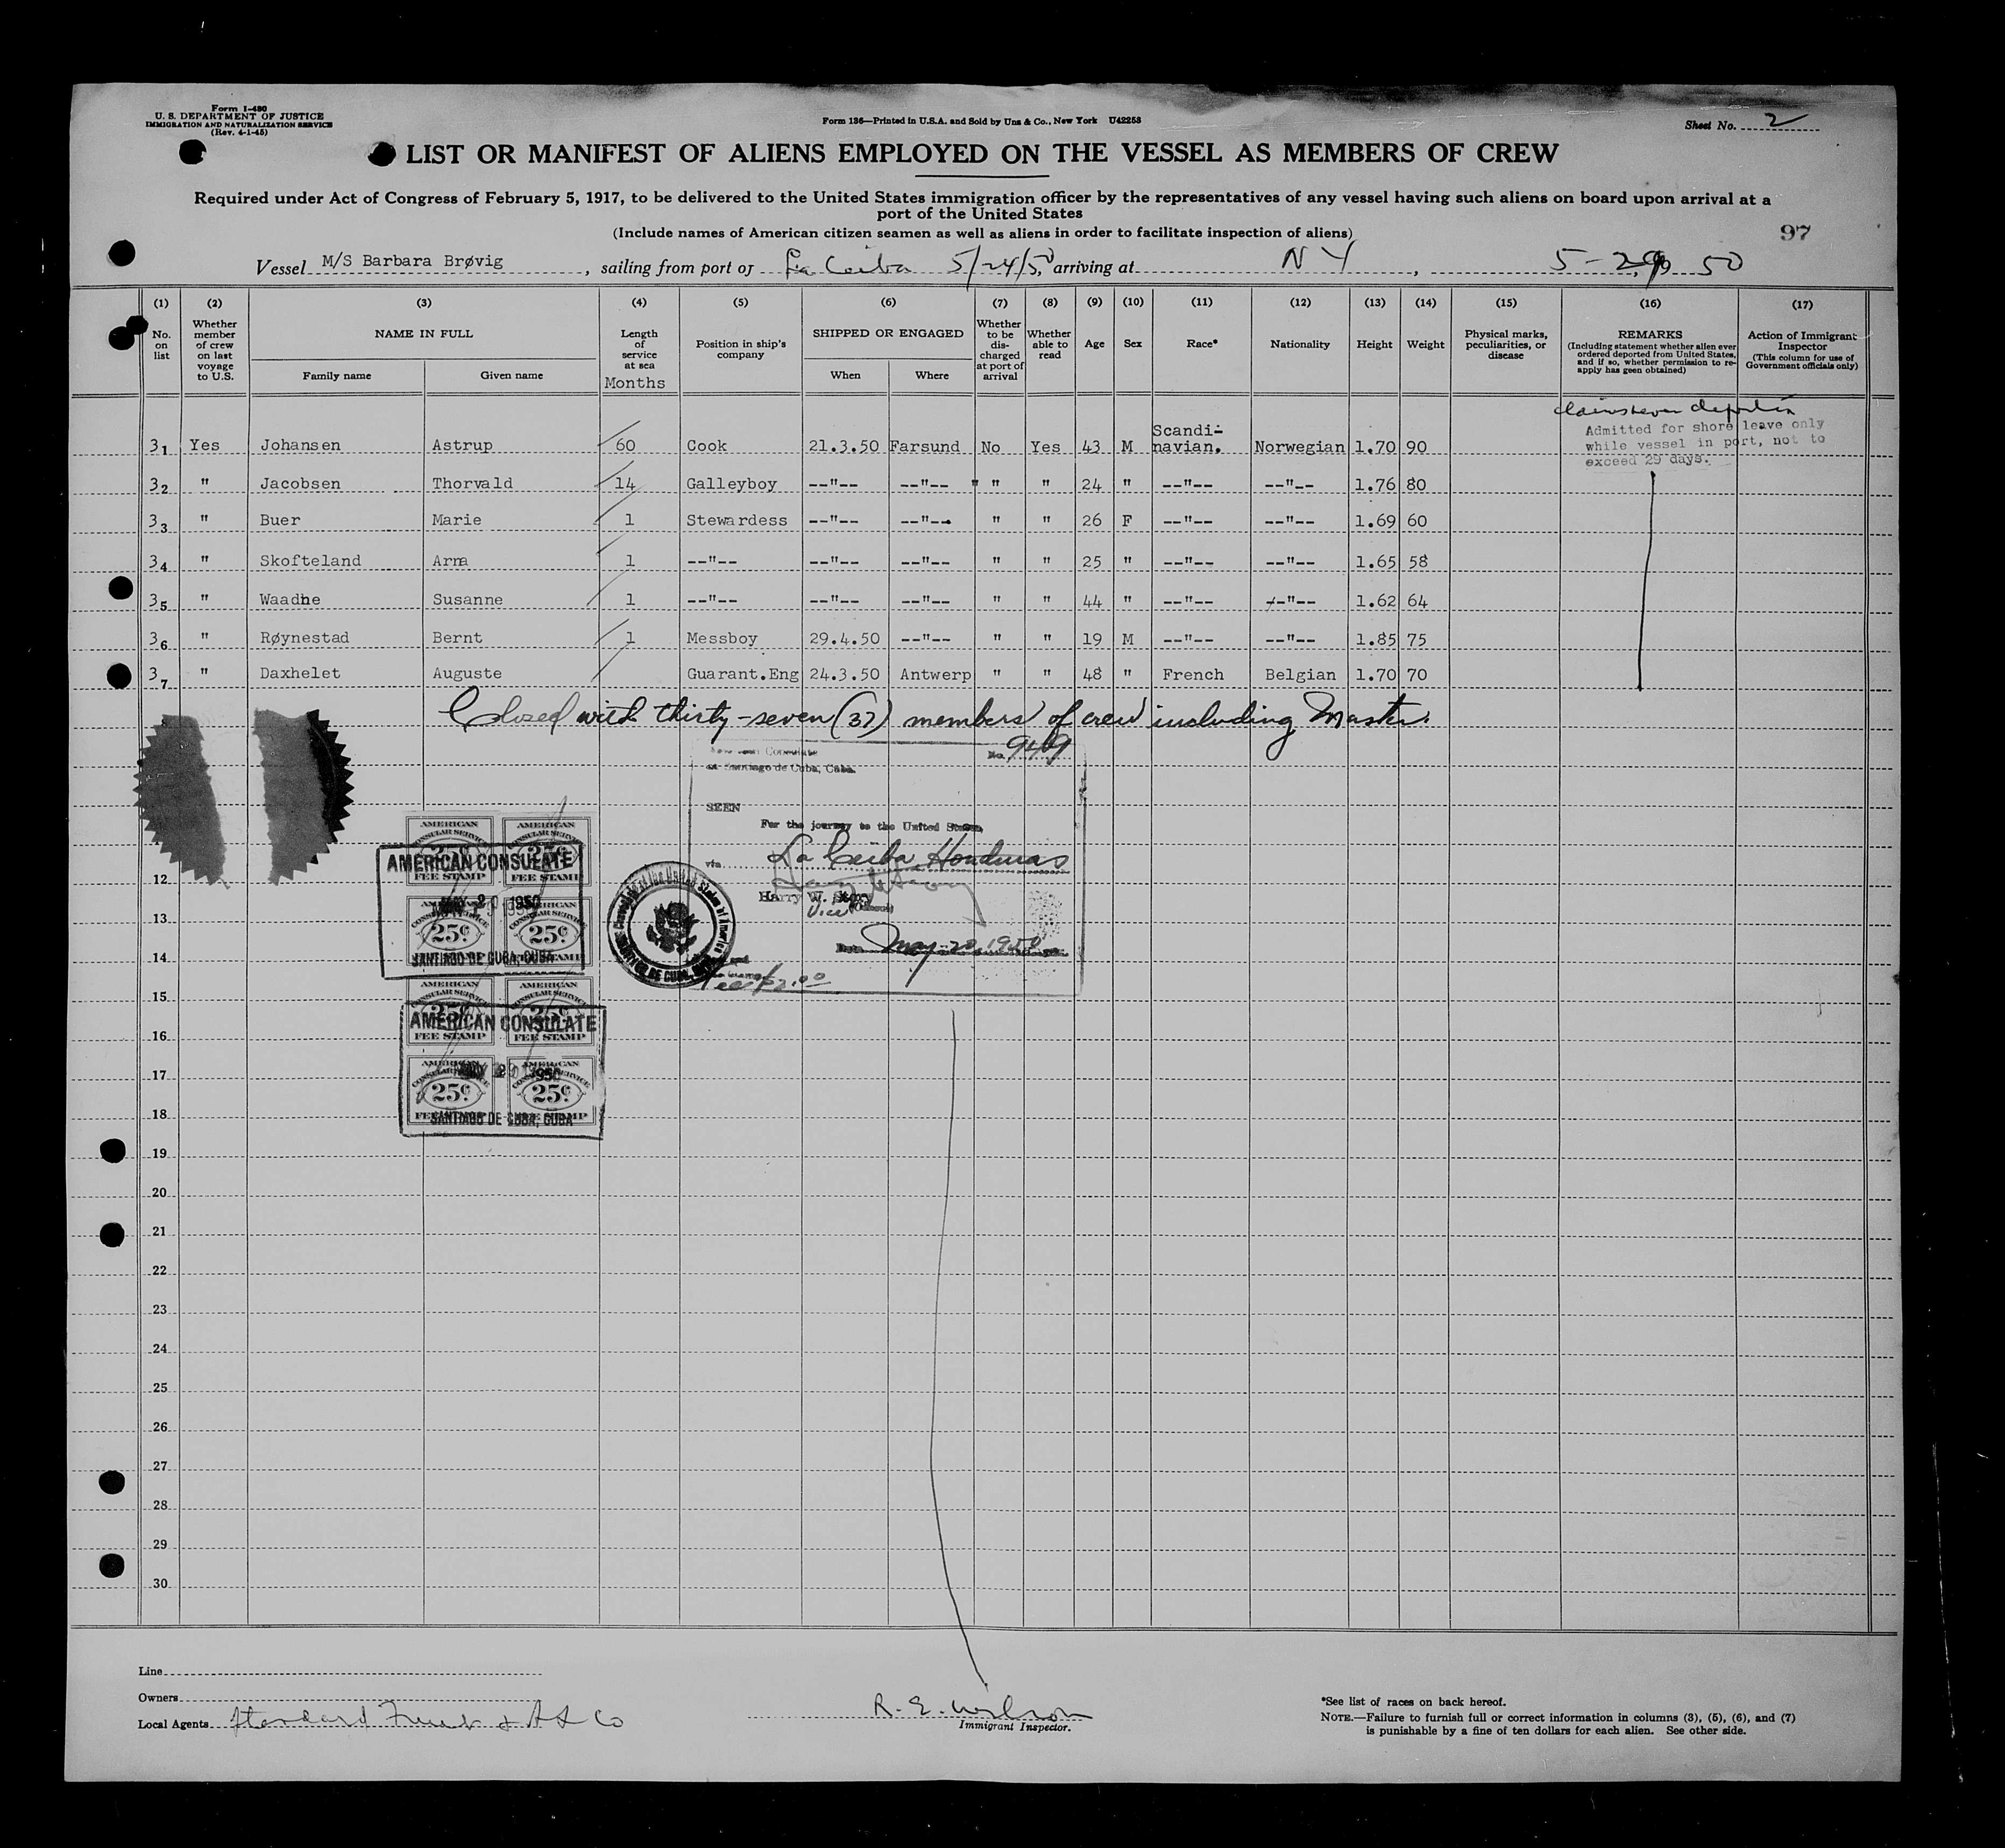 Form I-480
U. S. DEPARTMENT OF JUSTICE
IMMIGRATION AND NATURALIZATION SERVICE
(Rev. 4-1-45)
Form 136—Printed in U.S.A. and Sold by Unz & Co., New York U42258
Sheet No. 2
LIST OR MANIFEST OF ALIENS EMPLOYED ON THE VESSEL AS MEMBERS OF CREW
Required under Act of Congress of February 5, 1917, to be delivered to the United States immigration officer by the representatives of any vessel having such aliens on board upon arrival at a
port of the United States
(Include names of American citizen seamen as well as aliens in order to facilitate inspection of aliens)
97
Vessel M/S Barbara Brøvig, sailing from port of La Ceiba 5/24/50, arriving at N Y, 5-29 50
(1) (2) (3) (4) (5) (6) (7) (8) (9) (10) (11) (12) (13) (14) (15) (16) (17)
No. on list
Whether member of crew on last voyage to U.S.
NAME IN FULL
Family name
Given name
Length of service at sea
Months
Position in ship's company
SHIPPED OR ENGAGED
When
Where
Whether to be discharged at port of arrival
Whether able to read
Age
Sex
Race*
Nationality
Height
Weight
Physical marks, peculiarities, or disease
REMARKS
(Including statement whether alien ever ordered deported from United States, and if so, whether permission to re-apply has geen obtained)
Action of Immigrant Inspector
(This column for use of Government officials only)
Admitted for shore leave only
while vessel in port, not to
exceed 29 days.
31 Yes Johansen Astrup 60 Cook 21.3.50 Farsund No Yes 43 M Scandi-navian. Norwegian 1.70 90
32 " Jacobsen Thorvald 14 Galleyboy --"-- --"-- " " 24 " --"-- --"-- 1.76 80
33 " Buer Marie 1 Stewardess --"-- --"-- " " 26 F --"-- --"-- 1.69 60
34 " Skofteland Anna 1 --"-- --"-- --"-- " " 25 " --"-- --"-- 1.65 58
35 " Waadne Susanne 1 --"-- --"-- --"-- " " 44 " --"-- --"-- 1.62 64
36 " Røynestad Bernt 1 Messboy 29.4.50 --"-- " " 19 M --"-- --"-- 1.85 75
37 " Daxhelet Auguste Guarant.Eng 24.3.50 Antwerp " " 48 " French Belgian 1.70 70
Closed with thirty-seven (37) members of crew including Master.
Consulate
at Santiago de Cuba, Cuba.
No. 949
SEEN
For the journey to the United States,
via La Ceiba, Honduras
Harry W. Story
Vice Consul
Date May 20, 1950
Fee $2.00
AMERICAN CONSULAR SERVICE
25¢
FEE STAMP
AMERICAN CONSULATE
MAY 20 1950
SANTIAGO DE CUBA, CUBA
AMERICAN CONSULATE
MAY 20 1950
SANTIAGO DE CUBA, CUBA
12
13
14
15
16
17
18
19
20
21
22
23
24
25
26
27
28
29
30
Line
Owners
Local Agents Standard Fruit & SS Co
R. E. Wilson
Immigrant Inspector.
*See list of races on back hereof.
NOTE.—Failure to furnish full or correct information in columns (3), (5), (6), and (7)
is punishable by a fine of ten dollars for each alien. See other side.